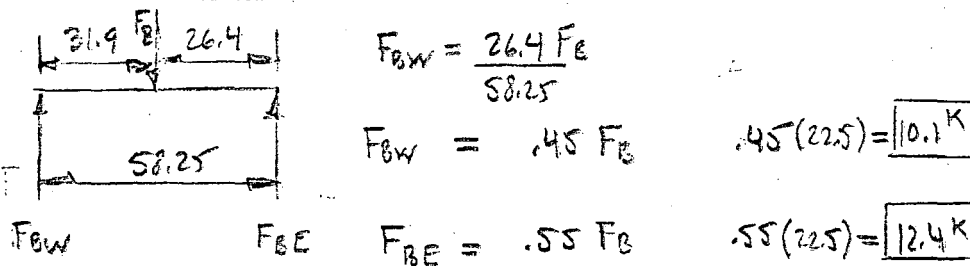 31.9 FB 26.4
58.25
FBW FBE
FBW = 26.4 FB
58.25
FBW = .45 FB .45(22.5) = 10.1 K
FBE = .55 FB .55(22.5) = 12.4 K